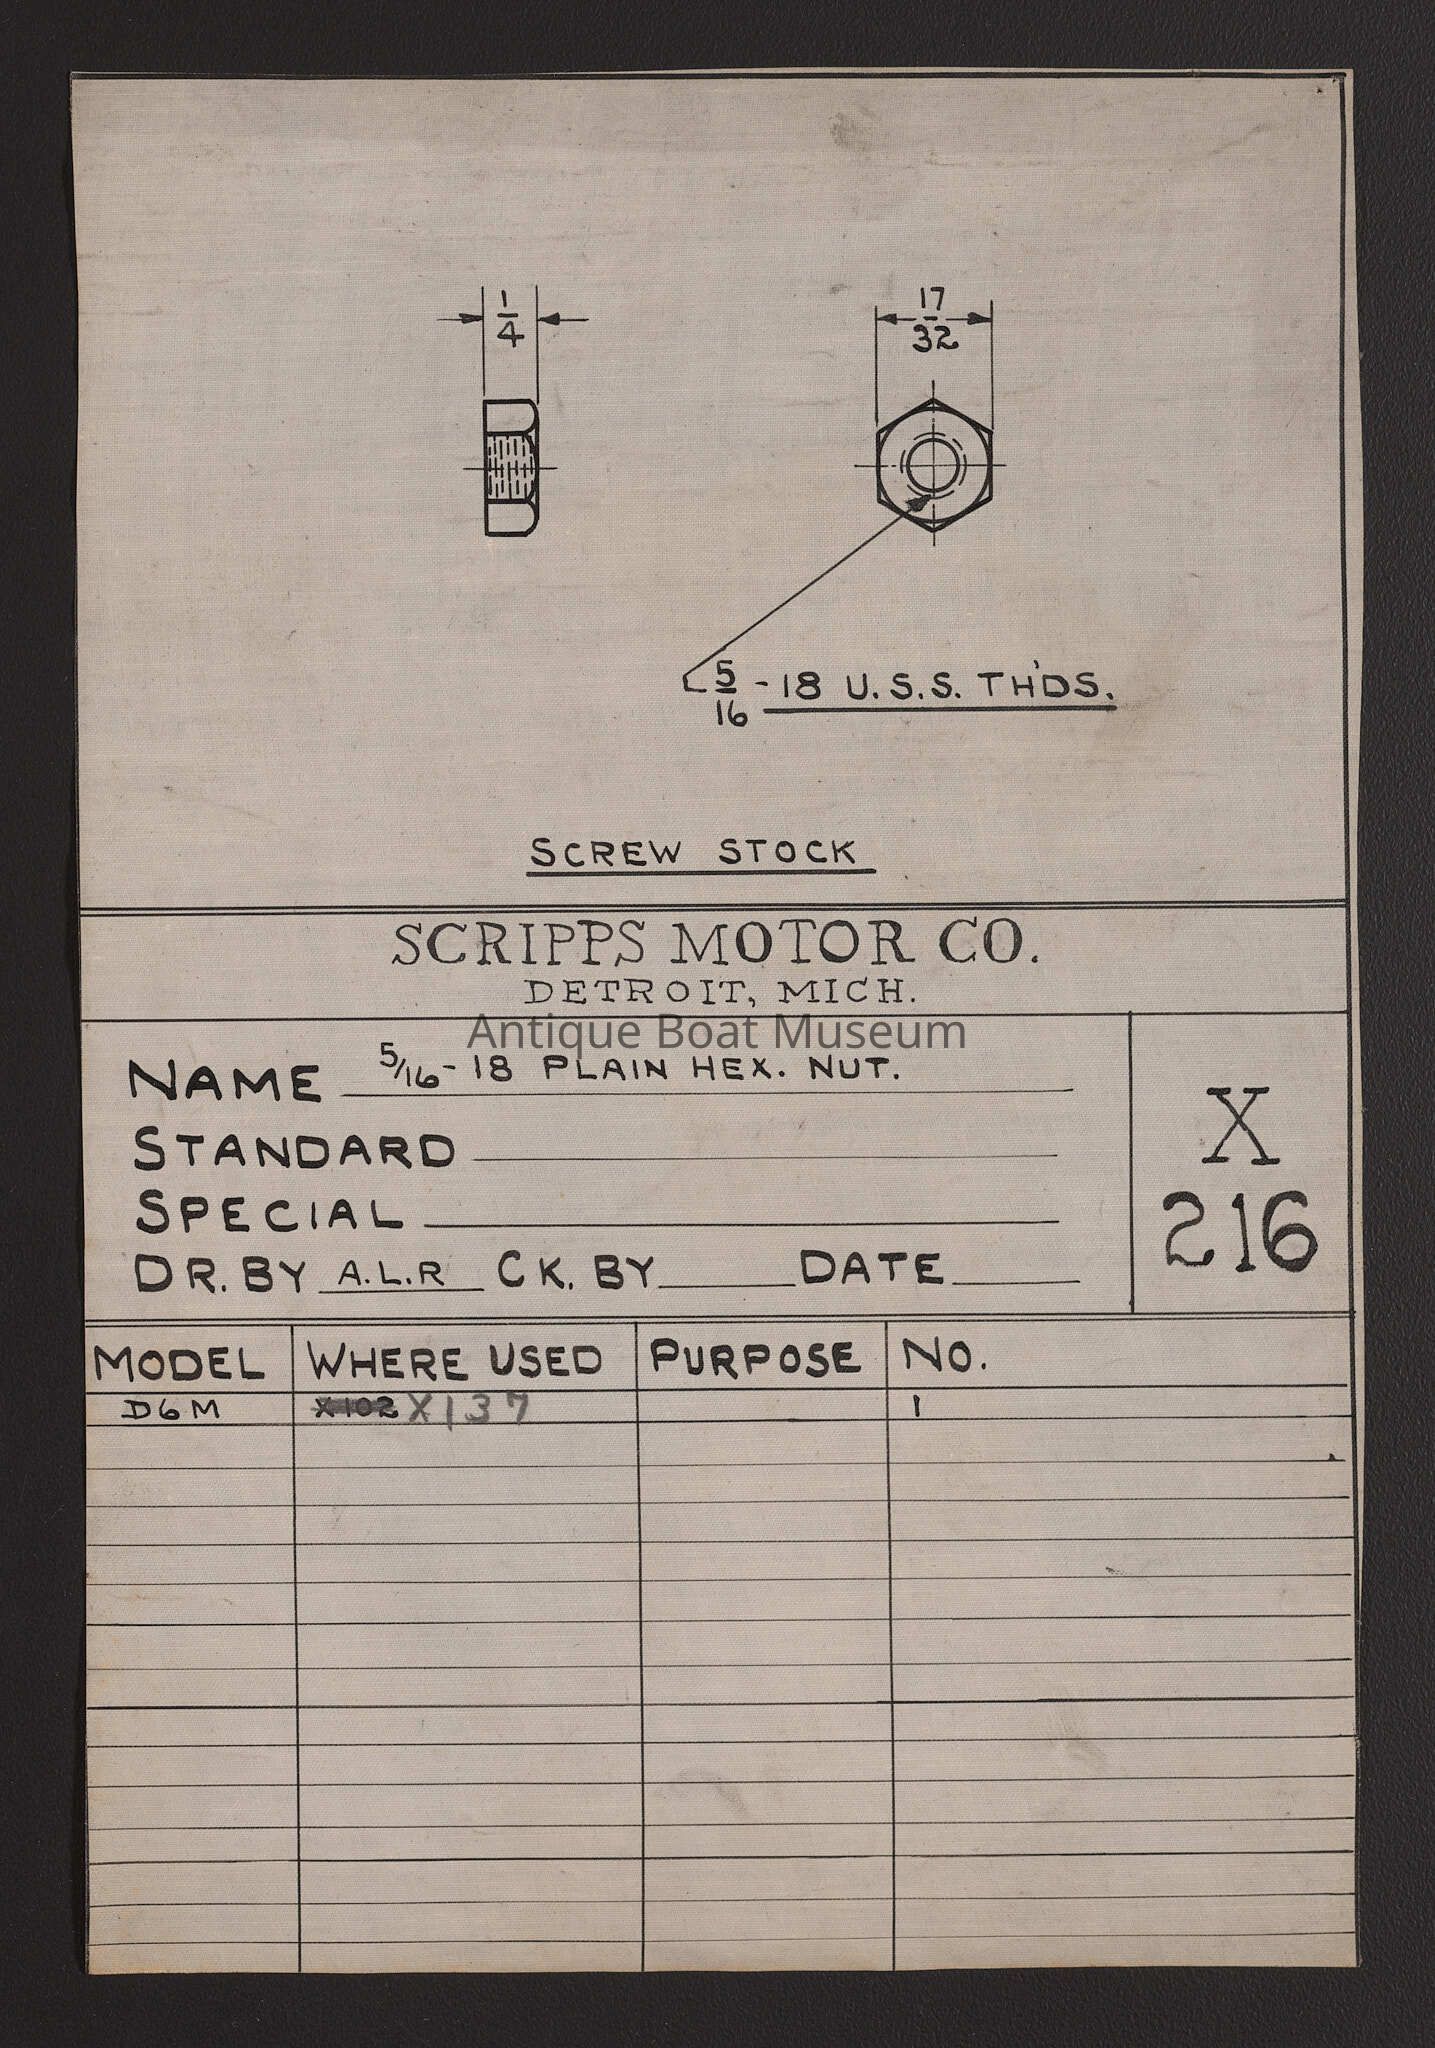 1/4
17/32
5/16 - 18 U.S.S. TH'DS.
SCREW STOCK
SCRIPPS MOTOR CO.
DETROIT, MICH.
Antique Boat Museum
NAME 5/16 - 18 PLAIN HEX. NUT.
STANDARD
SPECIAL
DR. BY A.L.R CK. BY DATE
X
216
MODEL WHERE USED PURPOSE NO.
D6M X102 X137 1